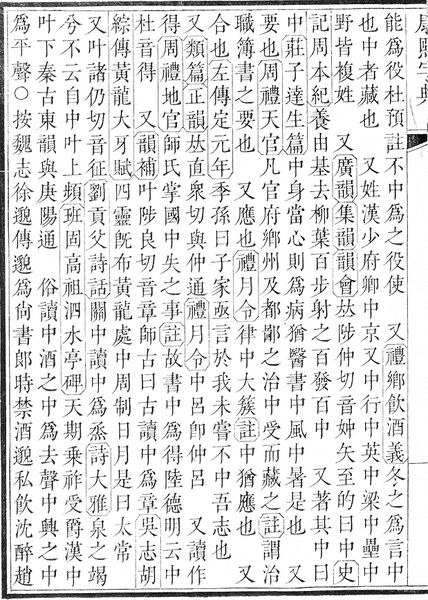 康熙字典
能爲役杜預註不中爲之役使　又禮鄉飮酒義冬之爲言中
也中者藏也　又姓漢少府卿中京又中行中英中梁中壘中
野皆複姓　又廣韻集韻韻會𠀤陟仲切音妕矢至的曰中史
記周本紀養由基去柳葉百步射之百發百中　又著其中曰
中莊子達生篇中身當心則爲病猶醫書中風中暑是也　又
要也周禮天官凡官府鄉州及都鄙之治中受而藏之註謂治
職簿書之要也　又應也禮月令律中大簇註中猶應也　又
合也左傳定元年季孫曰子家亟言於我未嘗不中吾志也
又類篇正韻𠀤直衆切與仲通禮月令中呂卽仲呂　又讀作
得周禮地官師氏掌國中失之事註故書中爲得陸德明云中
杜音得　又韻補叶陟良切音章師古曰古讀中爲章吳志胡
綜傳黃龍大牙賦四靈旣布黃龍處中周制日月是曰太常
又叶諸仍切音征劉貢父詩話關中讀中爲烝詩大雅泉之竭
兮不云自中叶上頻班固高祖泗水亭碑天期乗祚受爵漢中
叶下秦古東韻與庚陽通　俗讀中酒之中爲去聲中興之中
爲平聲○按魏志徐邈傳邈爲尙書郞時禁酒邈私飮沈醉趙